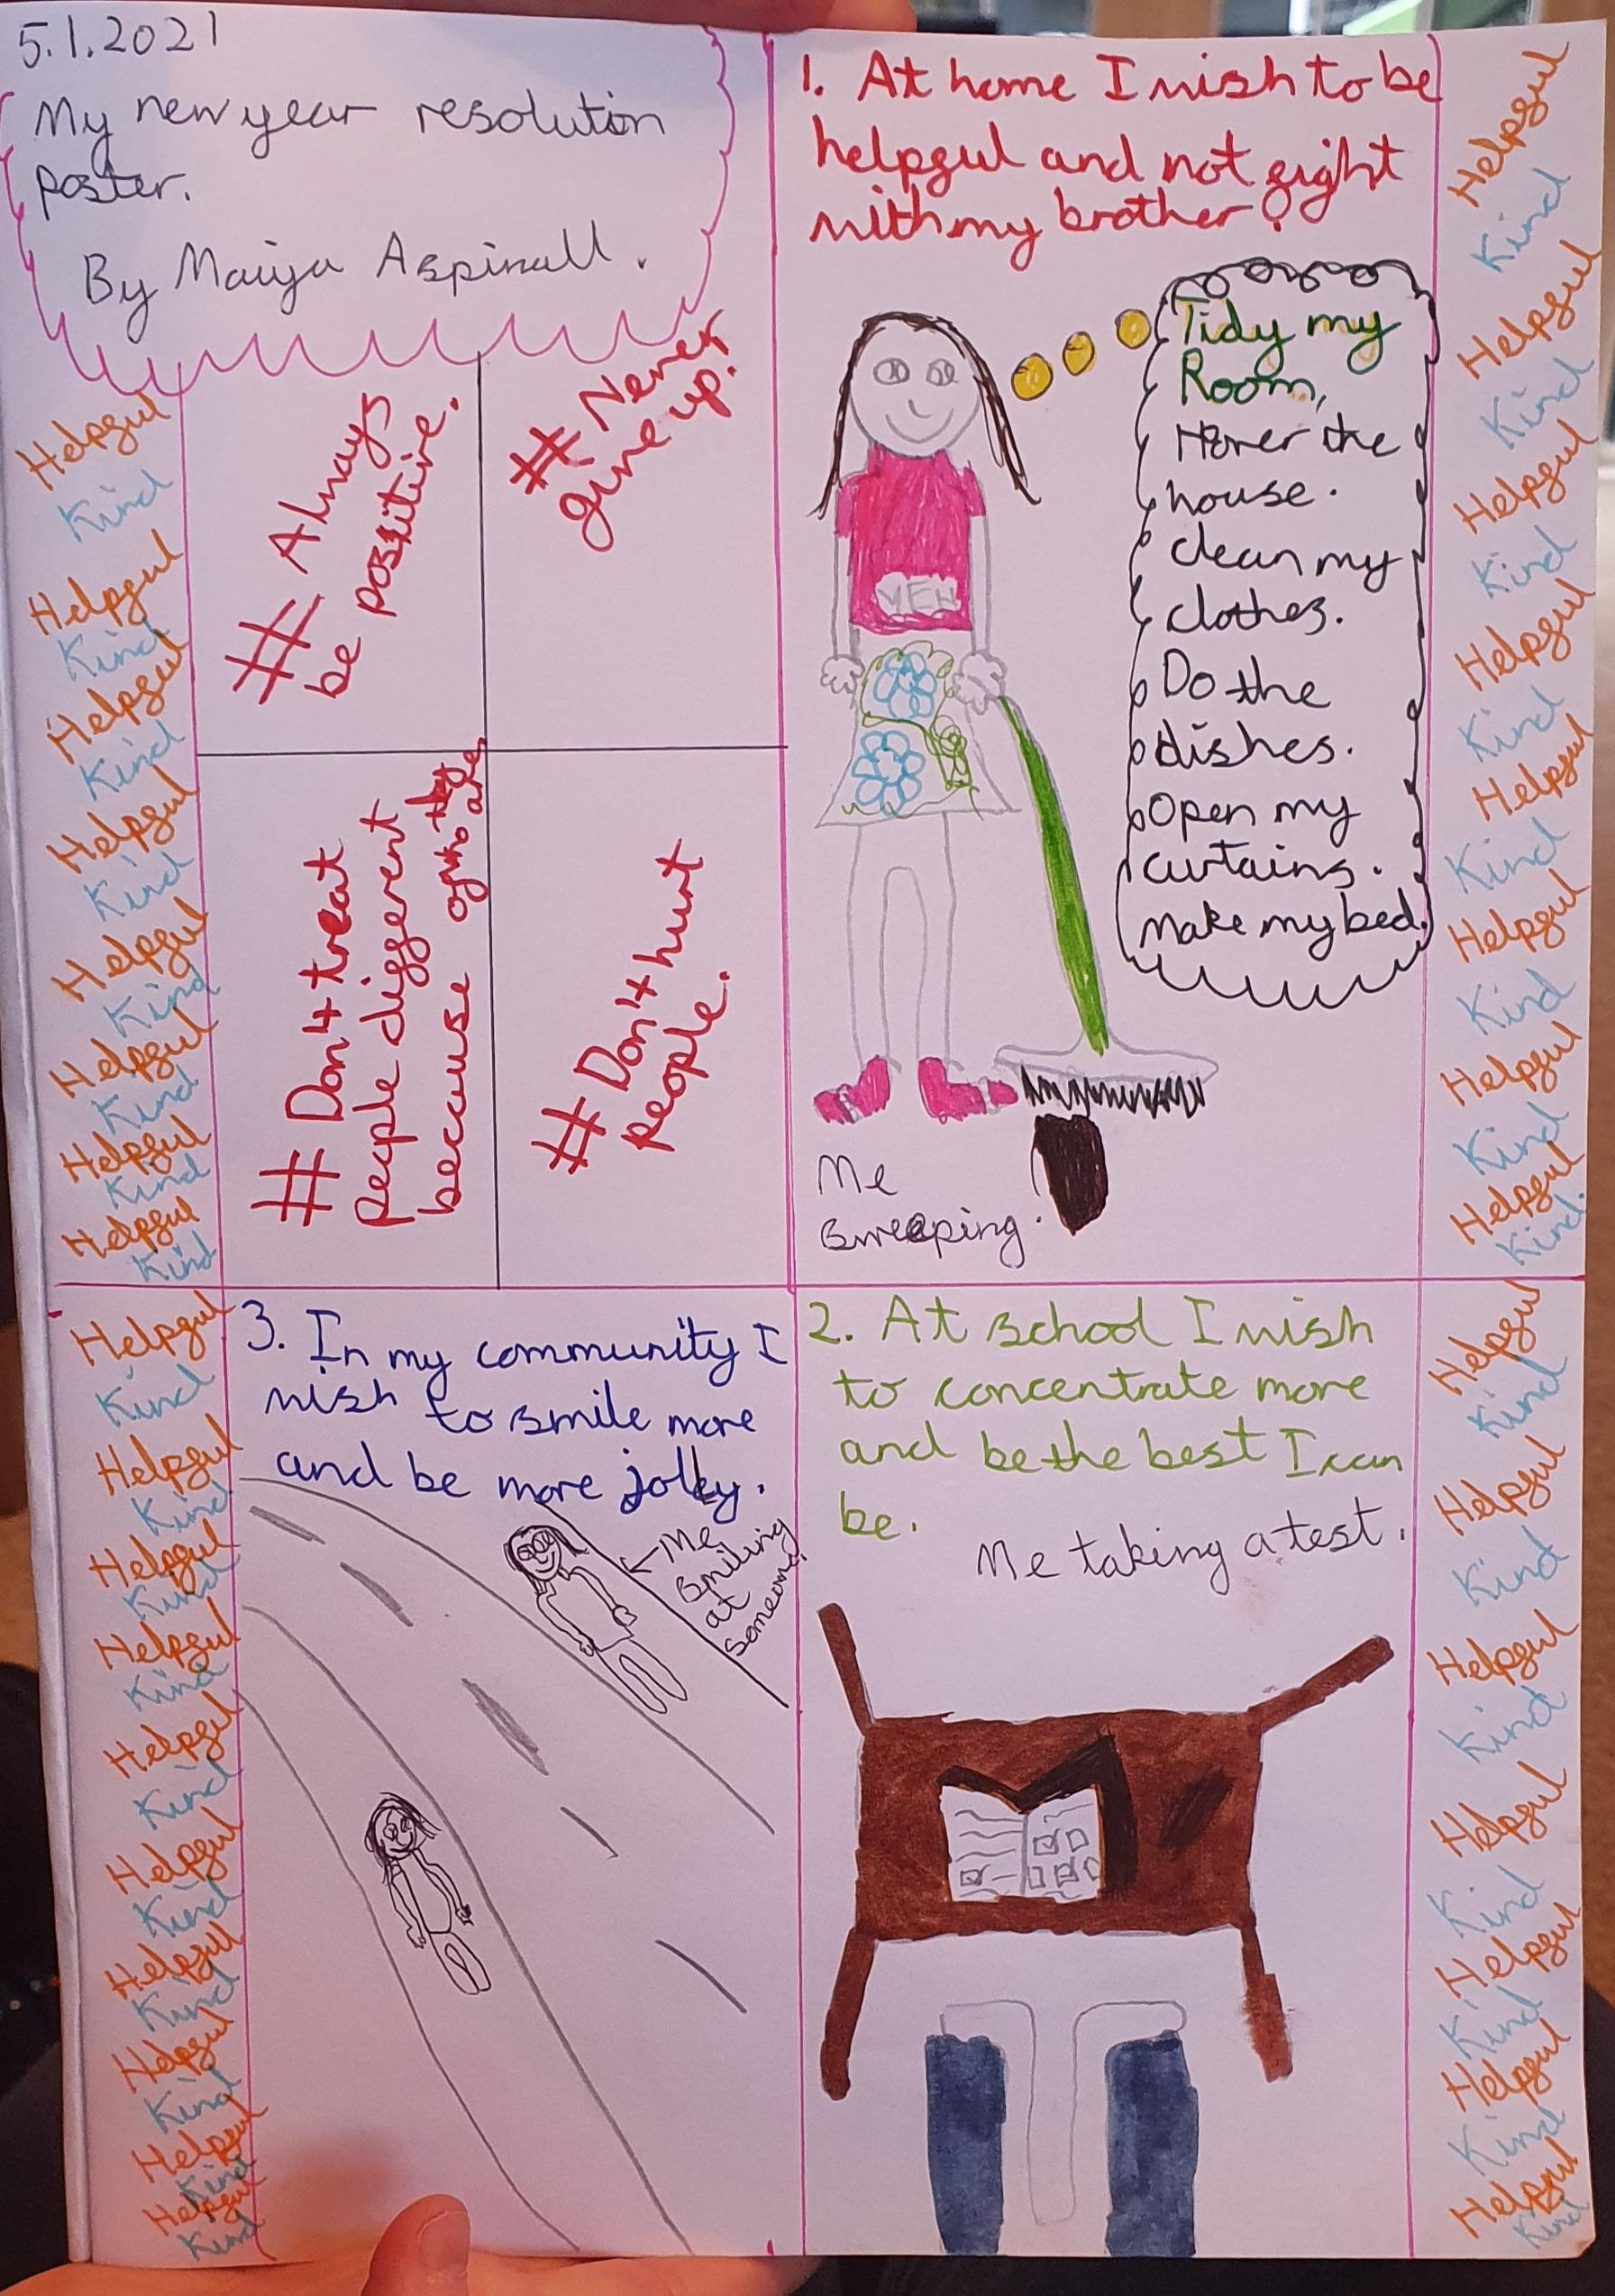 5.1.2021
My new year resolution
poster.
By Maiya Aspinall.
# Always
be positive.
# Never
give up.
# Don't treat
people different
because of who they are.
# Don't hurt
people.
1. At home I wish to be
helpful and not fight
with my brother!
Tidy my
Room,
Hover the
house.
clean my
clothes.
Do the
dishes.
Open my
curtains.
Make my bed.
MEH
Me
sweeping.
3. In my community I
wish to smile more
and be more jolly.
Me
smiling
at
someone.
2. At school I wish
to concentrate more
and be the best I can
be.
Me taking a test.
Helpful
Kind
Helpful
Kind
Helpful
Kind
Helpful
Kind
Helpful
Kind
Helpful
Kind
Helpful
Kind
Helpful
Kind
Helpful
Kind
Helpful
Kind
Helpful
Kind
Helpful
Kind
Helpful
Kind
Helpful
Kind
Helpful
Kind
Helpful
Kind
Helpful
Kind
Helpful
Kind
Helpful
Kind
Helpful
Kind
Helpful
Kind
Helpful
Kind
Helpful
Kind
Helpful
Kind
Helpful
Kind
Helpful
Kind.
Helpful
Kind
Helpful
Kind
Helpful
Kind
Helpful
Kind
Helpful
Kind
Helpful
Kind
Helpful
Kind